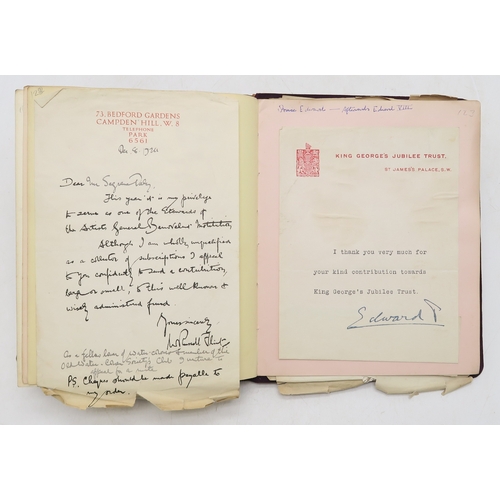 73, BEDFORD GARDENS
CAMPDEN HILL, W. 8
TELEPHONE
PARK
6561
Dec 8, 1934
Dear Mr
This year it is my privilege
to serve as one of the Stewards of
the Artists General Benevolent Institution.
Although I am wholly unqualified
as a collector of subscriptions I appeal
to you confidently to send a contribution,
large or small, to this well known &
wisely administered fund.
Yours sincerely
W Russell Flint
As a fellow lover of water-colour & member of the
Old Water-Colour Society's Club I venture to
appeal for a
P.S. Cheques should be made payable to
my order.
Edward
KING GEORGE'S JUBILEE TRUST.
ST JAMES'S PALACE, S.W.
I thank you very much for
your kind contribution towards
King George's Jubilee Trust.
Edward P